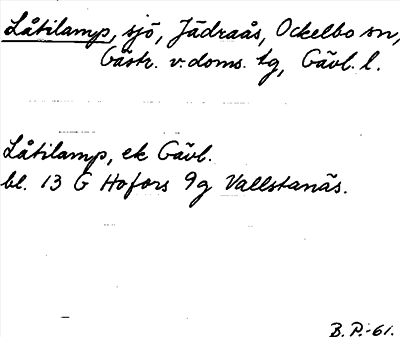 Låtilamp, sjö, Jädraås, Ockelbo sn,
Gästr. v. doms. tg, Gävl. l.
Låtilamp, ek Gävl.
bl. 13 G Hofors 9g Vallstanäs.
B. P. -61.